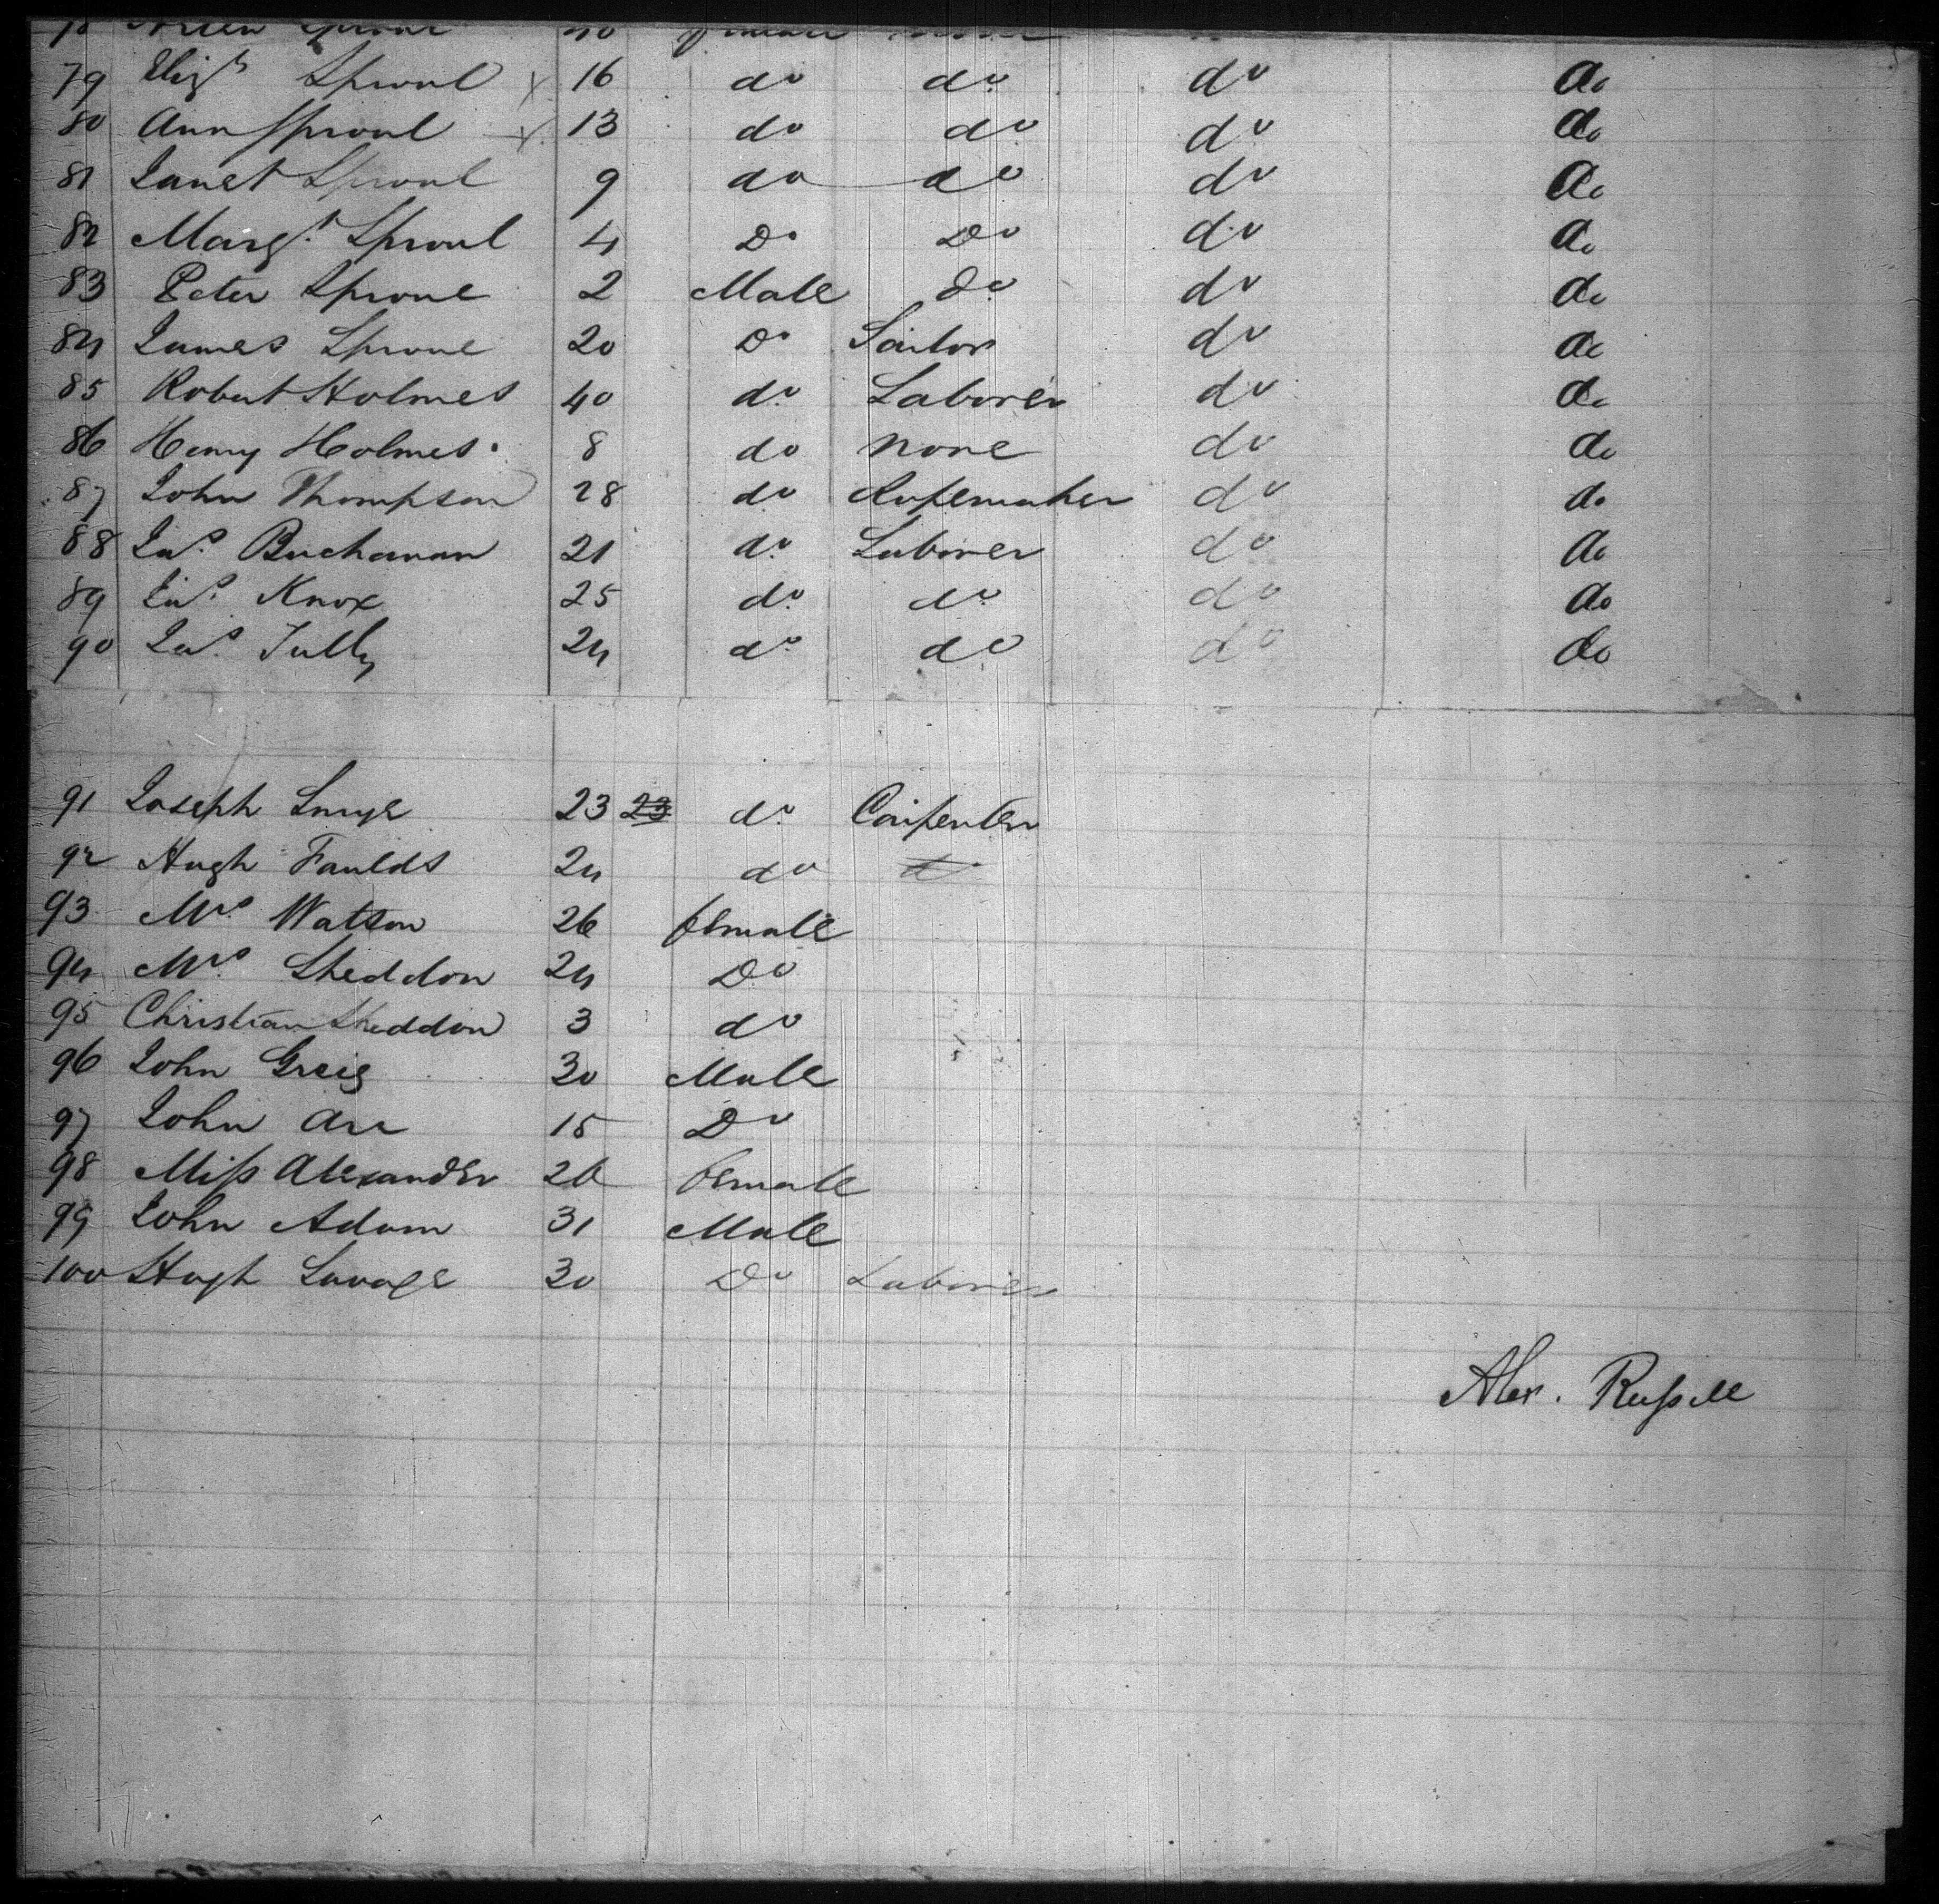 79 Eliz.h Sproul 16 do do do do
80 Ann Sproul 13 do do do do
81 Janet Sproul 9 do do do do
82 Marg.t Sproul 4 Do Do do do
83 Peter Sproul 2 Male do do do
84 James Sproul 20 Do Sailor do do
85 Robert Holmes 40 do Laborer do do
86 Henry Holmes 8 do none do do
87 John Thompson 28 do Ropemaker do do
88 Jas. Buchanan 21 do Laborer do do
89 Jas. Knox 25 do do do do
90 Jas. Tully 24 do do do do
91 Joseph 23 23 do Carpenter
92 Hugh Faulds 24 do
93 Mrs. Watson 26 female
94 Mrs. Sheddon 24 Do
95 Christian Sheddon 3 do
96 John Greig 30 Male
97 John 15 Do
98 Miss Alexander 26 Female
99 John Adam 31 Male
100 Hugh Savage 30 Do Laborer
Alex. Russell